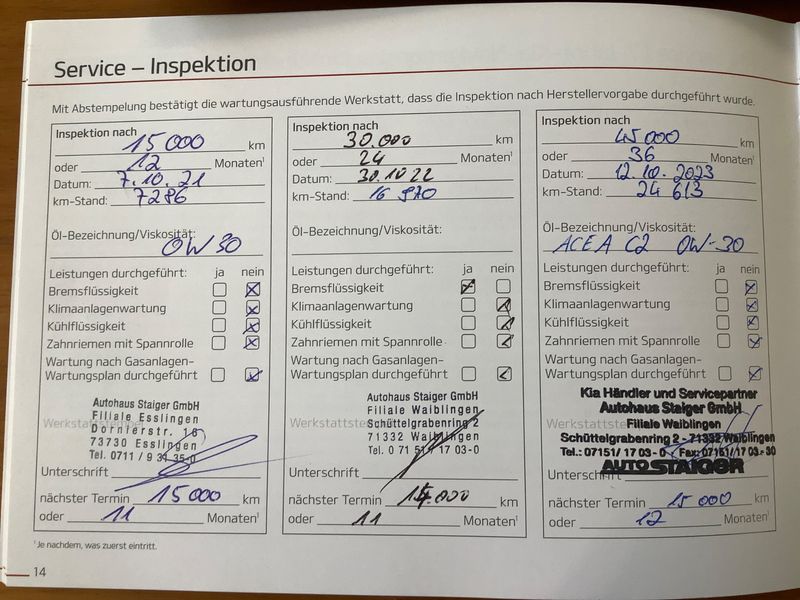 Service – Inspektion
Mit Abstempelung bestätigt die wartungsausführende Werkstatt, dass die Inspektion nach Herstellervorgabe durchgeführt wurde.
Inspektion nach
15 000 km
oder 12 Monaten¹
Datum: 7.10.21
km-Stand: 7286
Öl-Bezeichnung/Viskosität:
0W30
Leistungen durchgeführt: ja nein
Bremsflüssigkeit
Klimaanlagenwartung
Kühlflüssigkeit
Zahnriemen mit Spannrolle
Wartung nach Gasanlagen-
Wartungsplan durchgeführt
Autohaus Staiger GmbH
Filiale Esslingen
Dornierstr. 16
Werkstattstempel
73730 Esslingen
Tel. 0711 / 9 31 35-0
Unterschrift
nächster Termin 15000 km
oder 11 Monaten¹
Inspektion nach
30.000 km
oder 24 Monaten¹
Datum: 30.10 22
km-Stand: 16 920
Öl-Bezeichnung/Viskosität:
Leistungen durchgeführt: ja nein
Bremsflüssigkeit
Klimaanlagenwartung
Kühlflüssigkeit
Zahnriemen mit Spannrolle
Wartung nach Gasanlagen-
Wartungsplan durchgeführt
Autohaus Staiger GmbH
Filiale Waiblingen
Schüttelgrabenring 2
71332 Waiblingen
Unterschrift
nächster Termin km
oder 11 Monaten¹
Inspektion nach
45 000 km
oder 36 Monaten¹
Datum: 12.10.2023
km-Stand: 24 613
Öl-Bezeichnung/Viskosität:
ACEA C2 0W-30
Leistungen durchgeführt: ja nein
Bremsflüssigkeit
Klimaanlagenwartung
Kühlflüssigkeit
Zahnriemen mit Spannrolle
Wartung nach Gasanlagen-
Wartungsplan durchgeführt
Kia Händler und Servicepartner
Autohaus Staiger GmbH
Filiale Waiblingen
Schüttelgrabenring 2 - 71332 Waiblingen
Tel.: 07151/ 17 03 - 0 Fax: 07151/ 17 03 - 30
AUTO STAIGER
Unterschrift
nächster Termin 15 000 km
oder 12 Monaten¹
¹Je nachdem, was zuerst eintritt.
14